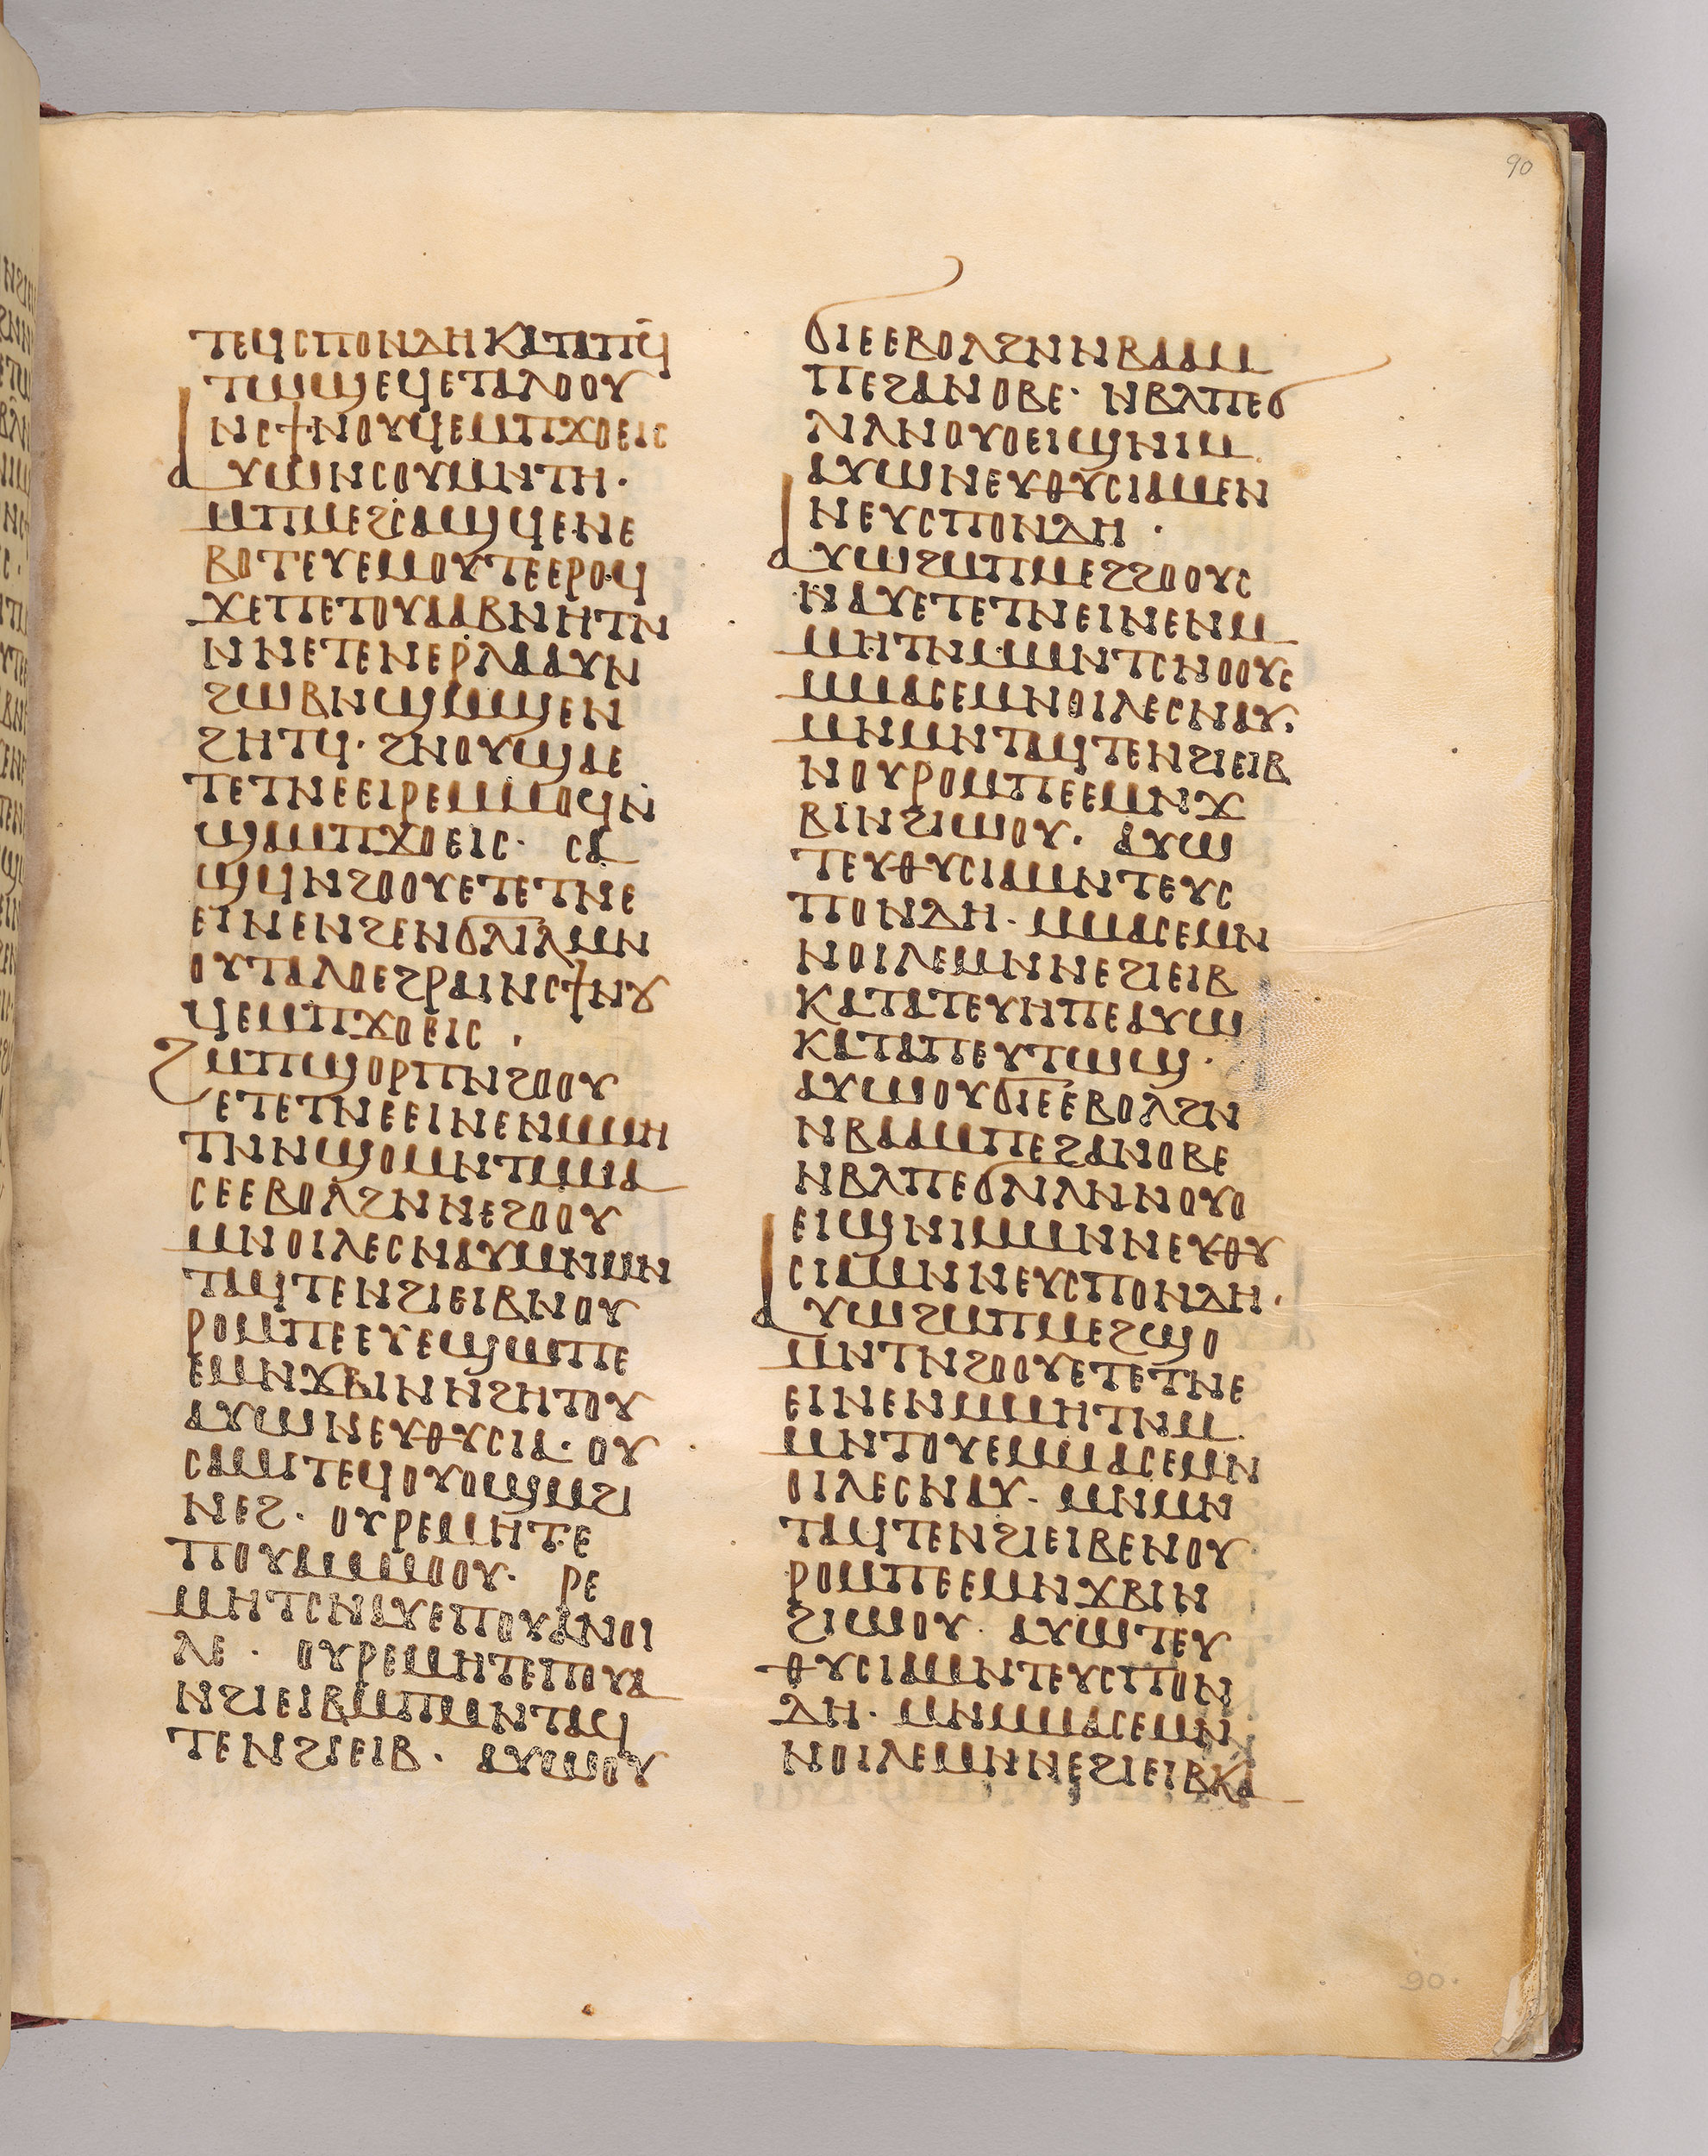 90
ⲧⲉϥⲥⲡⲟⲛⲇⲏⲕⲁⲧⲁⲡϥ̄
ⲧⲱϣⲉϥⲉⲧⲁⲗⲟⲟⲩ
ⲛⲥϯⲛⲟⲩϥⲉⲙⲡϫⲟⲉⲓⲥ
ⲁⲩⲱⲛⲥⲟⲩⲙⲛⲧⲏ·
ⲙⲡⲙⲉϩⲥⲁϣϥⲉⲛⲉ
ⲃⲟⲧⲉⲩⲉⲙⲟⲩⲧⲉⲉⲣⲟϥ
ϫⲉⲡⲉⲧⲟⲩⲁⲁⲃⲛⲏⲧⲛ
ⲛⲛⲉⲧⲉⲛⲉⲣⲗⲁⲁⲩⲛ
ϩⲱⲃⲛϣⲙϣⲉⲛ
ϩⲏⲧϥ· ϩⲛⲟⲩϣⲁⲉ
ⲧⲉⲧⲛⲉⲉⲓⲣⲉⲙⲙⲟϥⲛ
ϣⲁⲙⲡϫⲟⲉⲓⲥ· ⲥⲁ
ϣϥⲛϩⲟⲟⲩⲉⲧⲉⲧⲛⲉ
ⲉⲓⲛⲉⲛϩⲉⲛϭⲗⲓⲗⲙⲛ
ⲟⲩⲧⲁⲗⲟⲉϩⲣⲁⲓⲛⲥϯⲛⲟⲩ
ϥⲉⲙⲡϫⲟⲉⲓⲥ ·
ϩⲙⲡϣⲟⲣⲡⲛϩⲟⲟⲩ
ⲉⲧⲉⲧⲛⲉⲉⲓⲛⲉⲛⲙⲙⲏ
ⲧⲛⲛϣⲟⲙⲛⲧⲙⲙⲁ
ⲥⲉⲉⲃⲟⲗϩⲛⲛⲉϩⲟⲟⲩ
ⲙⲛⲟⲓⲗⲉⲥⲛⲁⲩⲙⲛⲙⲛ
ⲧⲁϥⲧⲉⲛϩⲓⲉⲓⲃⲛⲟⲩ
ⲣⲟⲙⲡⲉⲉⲩⲉϣⲱⲡⲉ
ⲉⲙⲛϫⲃⲓⲛⲛϩⲏⲧⲟⲩ
ⲁⲩⲱⲛⲉⲩⲑⲩⲥⲓⲁ· ⲟⲩ
ⲥⲁⲙⲓⲧⲉϥⲟⲩⲟϣⲙϩⲓ
ⲛⲉϩ· ⲟⲩⲣⲉⲙⲏⲧⲉ
ⲡⲟⲩⲁⲙⲙⲟⲟⲩ· ⲣⲉ
ⲙⲏⲧⲥⲛⲁⲩⲉⲡⲟⲩⲁⲛⲟⲓ
ⲗⲉ · ⲟⲩⲣⲉⲙⲏⲧⲉⲡⲟⲩⲁ
ⲛϩⲓⲉⲓⲃⲙⲡⲙⲛⲧⲁϥ
ⲧⲉⲛϩⲓⲉⲓⲃ· ⲁⲩⲱⲟⲩ
ϭⲓⲉⲉⲃⲟⲗϩⲛⲛⲃⲁⲁⲙ
ⲡⲉϩⲁⲛⲟⲃⲉ· ⲛⲃⲗⲡⲉϭ
ⲗⲓⲗⲛⲟⲩⲟⲉⲓϣⲛⲓⲙ
ⲁⲩⲱⲛⲉⲩⲑⲩⲥⲓⲁⲙⲉⲛ
ⲛⲉⲩⲥⲡⲟⲛⲇⲏ ·
ⲁⲩⲱϩⲙⲡⲙⲉϩϩⲟⲟⲩⲥ
ⲛⲁⲩⲉⲧⲉⲧⲛⲉⲓⲛⲉⲛⲙ
ⲙⲏⲧⲛⲙⲙⲛⲧⲥⲛⲟⲟⲩⲥ
ⲙⲙⲁⲥⲉⲙⲛⲟⲓⲗⲉⲥⲛⲁⲩ·
ⲙⲛⲙⲛⲧⲁϥⲧⲉⲛϩⲓⲉⲓⲃ
ⲛⲟⲩⲣⲟⲙⲡⲉⲉⲙⲛϫ
ⲃⲓⲛϩⲓⲱⲟⲩ· ⲁⲩⲱ
ⲧⲉⲩⲑⲩⲥⲓⲁⲙⲛⲧⲉⲩⲥ
ⲡⲟⲛⲇⲏ· ⲙⲙⲁⲥⲉⲙⲛ
ⲛⲟⲓⲗⲉⲙⲛⲛⲉϩⲓⲉⲓⲃ
ⲕⲁⲧⲁⲧⲉⲩⲏⲡⲉⲁⲩⲱ
ⲕⲁⲧⲁⲡⲉⲩⲧⲱϣ·
ⲁⲩⲱⲟⲩϭⲓⲉⲉⲃⲟⲗϩⲛ
ⲛⲃⲁⲁⲙⲡⲉϩⲁⲛⲟⲃⲉ
ⲛⲃⲗⲡⲉϭⲗⲓⲗⲛⲛⲟⲩⲟ
ⲉⲓϣⲛⲓⲙⲙⲛⲛⲉⲩⲑⲩ
ⲥⲓⲁⲙⲛⲛⲉⲩⲥⲡⲟⲛⲇⲏ·
ⲁⲩⲱϩⲙⲡⲙⲉϩϣⲟ
ⲙⲛⲧⲛϩⲟⲟⲩⲉⲧⲉⲧⲛⲉ
ⲉⲓⲛⲉⲛⲙⲙⲏⲧⲛⲙ
ⲙⲛⲧⲟⲩⲉⲙⲙⲁⲥⲉⲙⲛ
ⲟⲓⲗⲉⲥⲛⲁⲩ· ⲙⲛⲙⲛ
ⲧⲁϥⲧⲉⲛϩⲓⲉⲓⲃⲉⲛⲟⲩ
ⲣⲟⲙⲡⲉⲉⲙⲛϫⲃⲓⲛ
ϩⲓⲱⲟⲩ· ⲁⲩⲱⲧⲉⲩ
ⲑⲩⲥⲓⲁⲙⲛⲧⲉⲩⲥⲡⲟⲛ
ⲇⲏ· ⲙⲛⲙⲙⲁⲥⲉⲙⲛ
ⲛⲟⲓⲗⲉⲙⲛⲛⲉϩⲓⲉⲓⲃⲕⲁ
90.